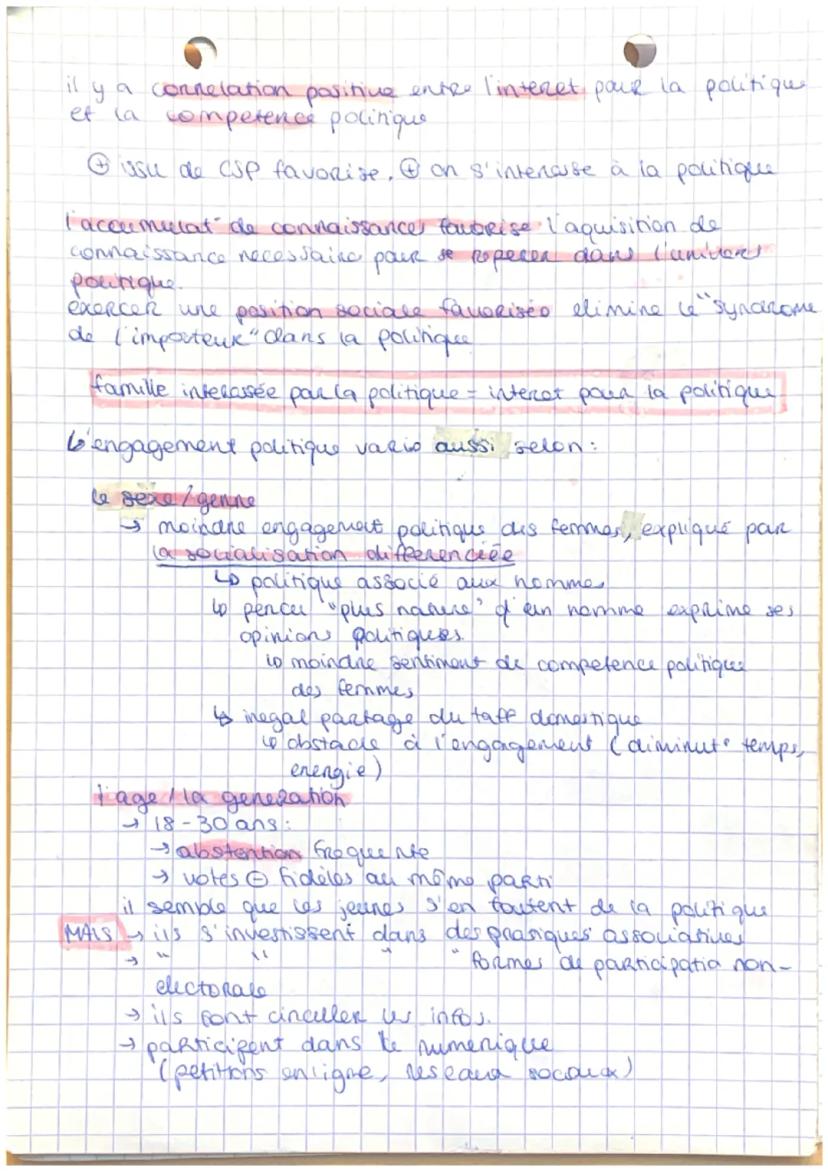 il y a correlation positive entre l'interet pour la politique
et la competence politique
⊕ issu de CSP favorise, ⊕ on s'interesse à la politique
l'accumulat° de connaissances favorise l'aquisition de
connaissance necessaire pour se reperer dans l'univers
politique.
exercer une position sociale favorisée elimine le "syndrome
de l'imposteur" dans la politique
famille interessée par la politique = interet pour la politique
L'engagement politique varie aussi selon :
le sexe/genre
→ moindre engagement politique des femmes, expliqué par
la socialisation differenciée
↳ politique associé aux hommes
↳ percu "plus naturel" q'un homme exprime ses
opinions politiques
↳ moindre sentiment de competence politique
des femmes
↳ inegal partage du taff domestique
↳ obstacle à l'engagement (diminut° temps,
energie)
l'age / la generation
→ 18-30 ans :
→ abstention frequente
→ votes ⊖ fidèles au même parti
il semble que les jeunes s'en foutent de la politique
MAIS → ils s'investissent dans des pratiques associatives
→ " " " " formes de participatio non-
electorale
→ ils font circuler les infos.
→ participent dans le numerique
(petitions en ligne, reseaux sociaux)